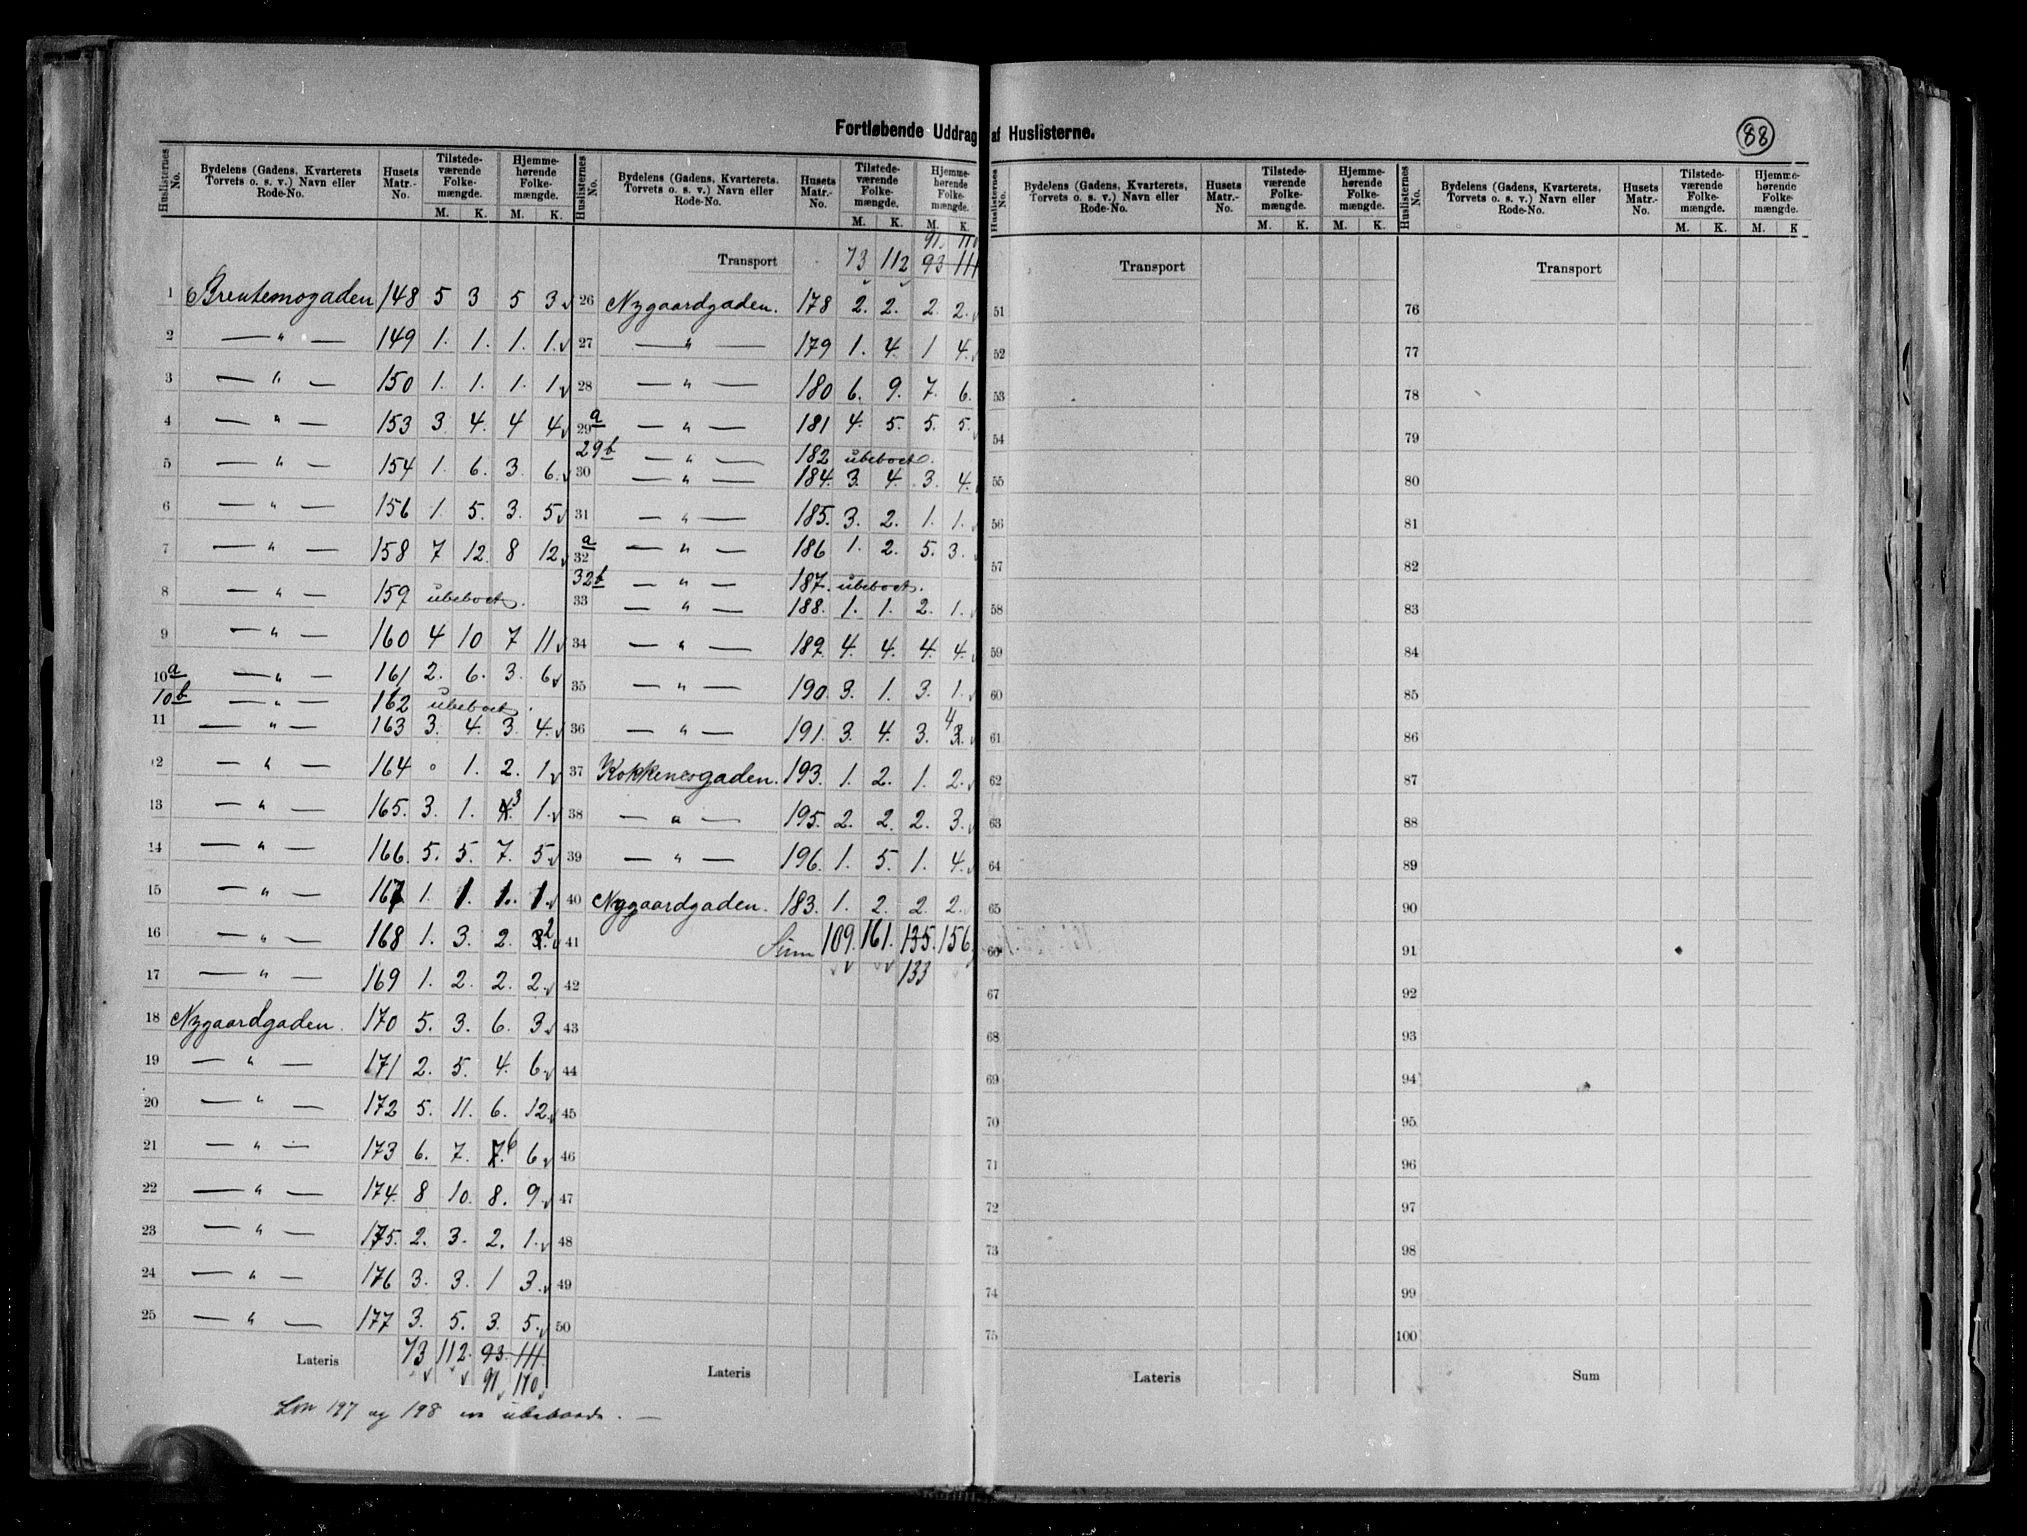 Fortløbende Uddrag af Huslisterne.
88
Huslisternes No. | Bydelens (Gadens, Kvarterets Torvets o. s. v.) Navn eller Rode-No. | Husets Matr.-No. | Tilstedeværende Folkemængde. M. K. | Hjemmehørende Folkemængde. M. K.
1 Brentemogaden 148 5 3 5 3
2 — " — 149 1. 1. 1. 1.
3 — " — 150 1. 1. 1. 1
4 — " — 153 3. 4. 4 4
5 — " — 154 1. 6. 3. 6.
6 — " — 156 1. 5. 3. 5
7 — " — 158 7 12. 8 12
8 — " — 159 ubeboet.
9 — " — 160 4 10 7 11
10a — " — 161 2. 6. 3. 6
10b — " — 162 ubeboet.
11 — " — 163 3. 4. 3. 4.
12 — " — 164 0 1. 2. 1
13 — " — 165. 3. 1. 4. 3 1.
14 — " — 166. 5. 5. 7. 5
15 — " — 167 1. 1. 1. 1.
16 — " — 168 1. 3. 2. 3. 2
17 — " — 169 1. 2. 2. 2.
18 Nygaardgaden. 170 5. 3. 6. 3
19 — " — 171 2. 5. 4. 6
20 — " — 172 5. 11. 6. 12
21 — " — 173 6. 7. 7. 6 6
22 — " — 174. 8 10. 8. 9
23 — " — 175. 2. 3. 2. 1.
24 — " — 176 3. 3. 1 3.
25 — " — 177 3. 5. 3. 5.
Lateris 73 112. 93. 111.
91 110
197 og 198 ubeboede. —
Huslisternes No. | Bydelens (Gadens, Kvarterets. Torvets o. s. v.) Navn eller Rode-No. | Husets Matr.-No. | Tilstedeværende Folkemængde. M. K. | Hjemmehørende Folkemængde. M. K.
91. 110
Transport 73 112 93 111
26 Nygaardgaden. 178 2. 2. 2. 2.
27 — " — 179 1. 4. 1 4.
28 — " — 180 6. 9. 7. 6.
29a — " — 181 4. 5. 5. 5.
29b — " — 182 ubeboet.
30 — " — 184. 3. 4. 3. 4.
31 — " — 185. 3. 2. 1. 1.
32a — " — 186 1. 2. 5. 3.
32b — " — 187. ubeboet.
33 — " — 188. 1. 1. 2. 1.
34 — " — 189. 4. 4. 4. 4.
35 — " — 190. 3. 1. 3. 1.
36 — " — 191. 3. 4. 3. 4 3.
37 Kokkenesgaden. 193. 1. 2. 1. 2.
38 — " — 195. 2. 2. 2. 3.
39 — " — 196. 1. 5. 1. 4.
40 Nygaardgaden. 183. 1. 2. 2. 2.
41 Sum 109. 161. 135. 156
133
42
43
44
45
46
47
48
49
50
Lateris
Huslisternes No. | Bydelens (Gadens, Kvarterets, Torvets o. s. v.) Navn eller Rode-No. | Husets Matr.-No. | Tilstedeværende Folkemængde. M. K. | Hjemmehørende Folkemængde. M. K.
Transport
51
52
53
54
55
56
57
58
59
60
61
62
63
64
65
66
67
68
69
70
71
72
73
74
75
Lateris
Huslisternes No. | Bydelens (Gadens, Kvarterets, Torvets o. s. v.) Navn eller Rode-No. | Husets Matr.-No. | Tilstedeværende Folkemængde. M. K. | Hjemmehørende Folkemængde. M. K
Transport
76
77
78
79
80
81
82
83
84
85
86
87
88
89
90
91
92
93
94
95
96
97
98
99
100
Sum